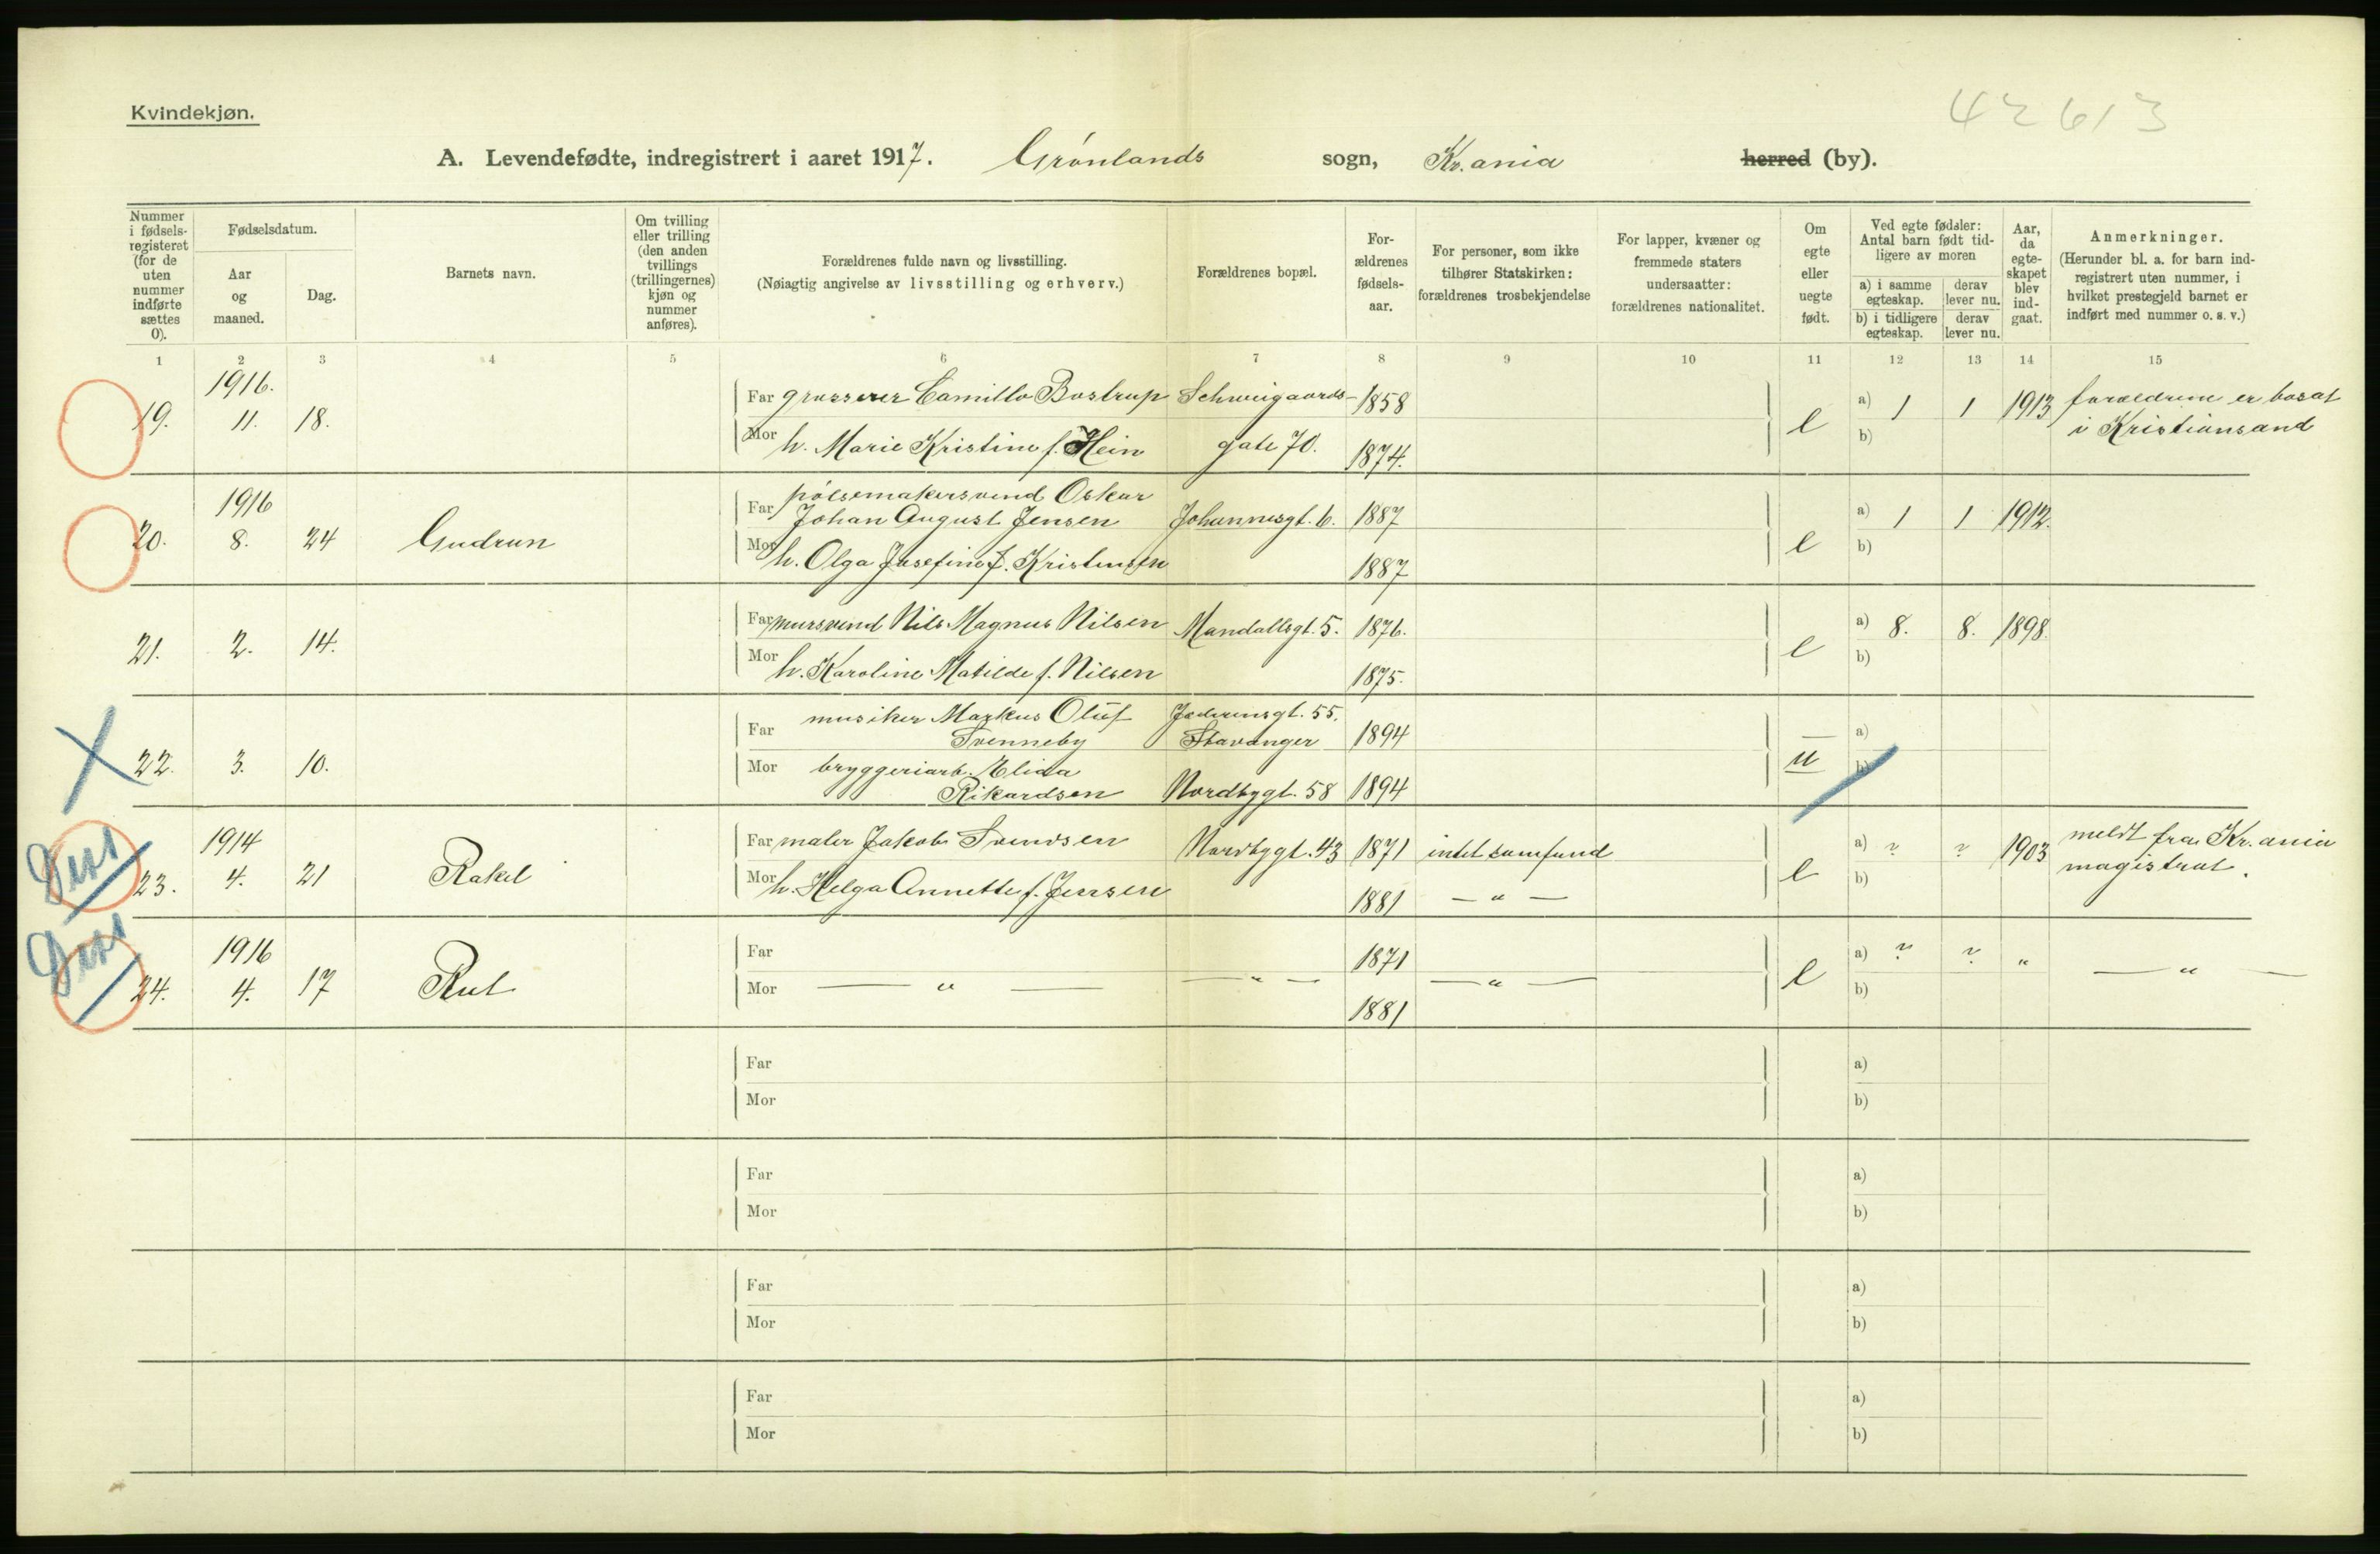 42613
Kvindekjøn.
A. Levendefødte, indregistrert i aaret 1917. Grønlands sogn, Kr.ania herred (by).
Nummer i fødselsregisteret (for de uten nummer indførte sættes 0).
Fødselsdatum.
Aar og maaned.
Dag.
Barnets navn.
Om tvilling eller trilling (den anden tvillings (trillingernes) kjøn og nummer anføres).
Forældrenes fulde navn og livsstilling.
(Nøiagtig angivelse av livsstilling og erhverv.)
Forældrenes bopæl.
For-ældrenes fødsels-aar.
For personer, som ikke tilhører Statskirken: forældrenes trosbekjendelse
For lapper, kvæner og fremmede staters undersaatter: forældrenes nationalitet.
Om egte eller uegte født.
Ved egte fødsler: Antal barn født tid-ligere av moren
a) i samme egteskap.
derav lever nu.
b) i tidligere egteskap.
derav lever nu.
Aar, da egte-skapet blev ind-gaat.
Anmerkninger.
(Herunder bl. a. for barn ind-registrert uten nummer, i hvilket prestegjeld barnet er indført med nummer o. s. v.)
1 2 3 4 5 6 7 8 9 10 11 12 13 14 15
19. 1916. 11. 18. Far grosserer Camillo Bostrup Schweigaards- 1858 e a) 1 1 1913 forældrene er bosat
Mor h. Marie Kristine f. Hein gate 70. 1874. b) i Kristiansand
20. 1916 8. 24 Gudrun Far pølsemakersvend Oskar
Johan August Jensen Johannesgt. 6. 1887 e a) 1 1 1912.
Mor h. Olga Josefine f. Kristensen 1887 b)
21. 2. 14. Far mursvend Nils Magnus Nilsen Mandallsgt. 5. 1876. e a) 8. 8. 1898.
Mor h. Karoline Matilde f. Nilsen 1875. b)
22. 3. 10. Far musiker Markus Oluf Jæderensgt. 55.
Svenneby Stavanger 1894 u a)
Mor bryggeriarb. Elida b)
Rikardsen Nordbygt. 58 1894
23. 1914 4. 21 Rakel Far maler Jakob Svendsen Nordbygt. 43 1871 intet samfund e a) ? ? 1903 meldt fra Kr.ania
Mor h. Helga Annette f. Jensen 1881 — " — b) magistrat.
24. 1916 4. 17 Rut Far 1871 e a) ? ? "
Mor — " — — " — 1881 — " — b) — " —
Far a)
Mor b)
Far a)
Mor b)
Far a)
Mor b)
Far a)
Mor b)